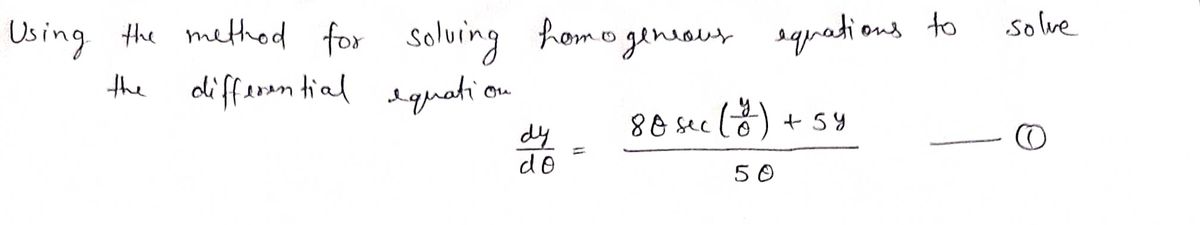 Using the method for solving homogeneous equations to solve
the differential equation
dy/dθ = (8θ sec(y/θ) + 5y)/5θ —— ①